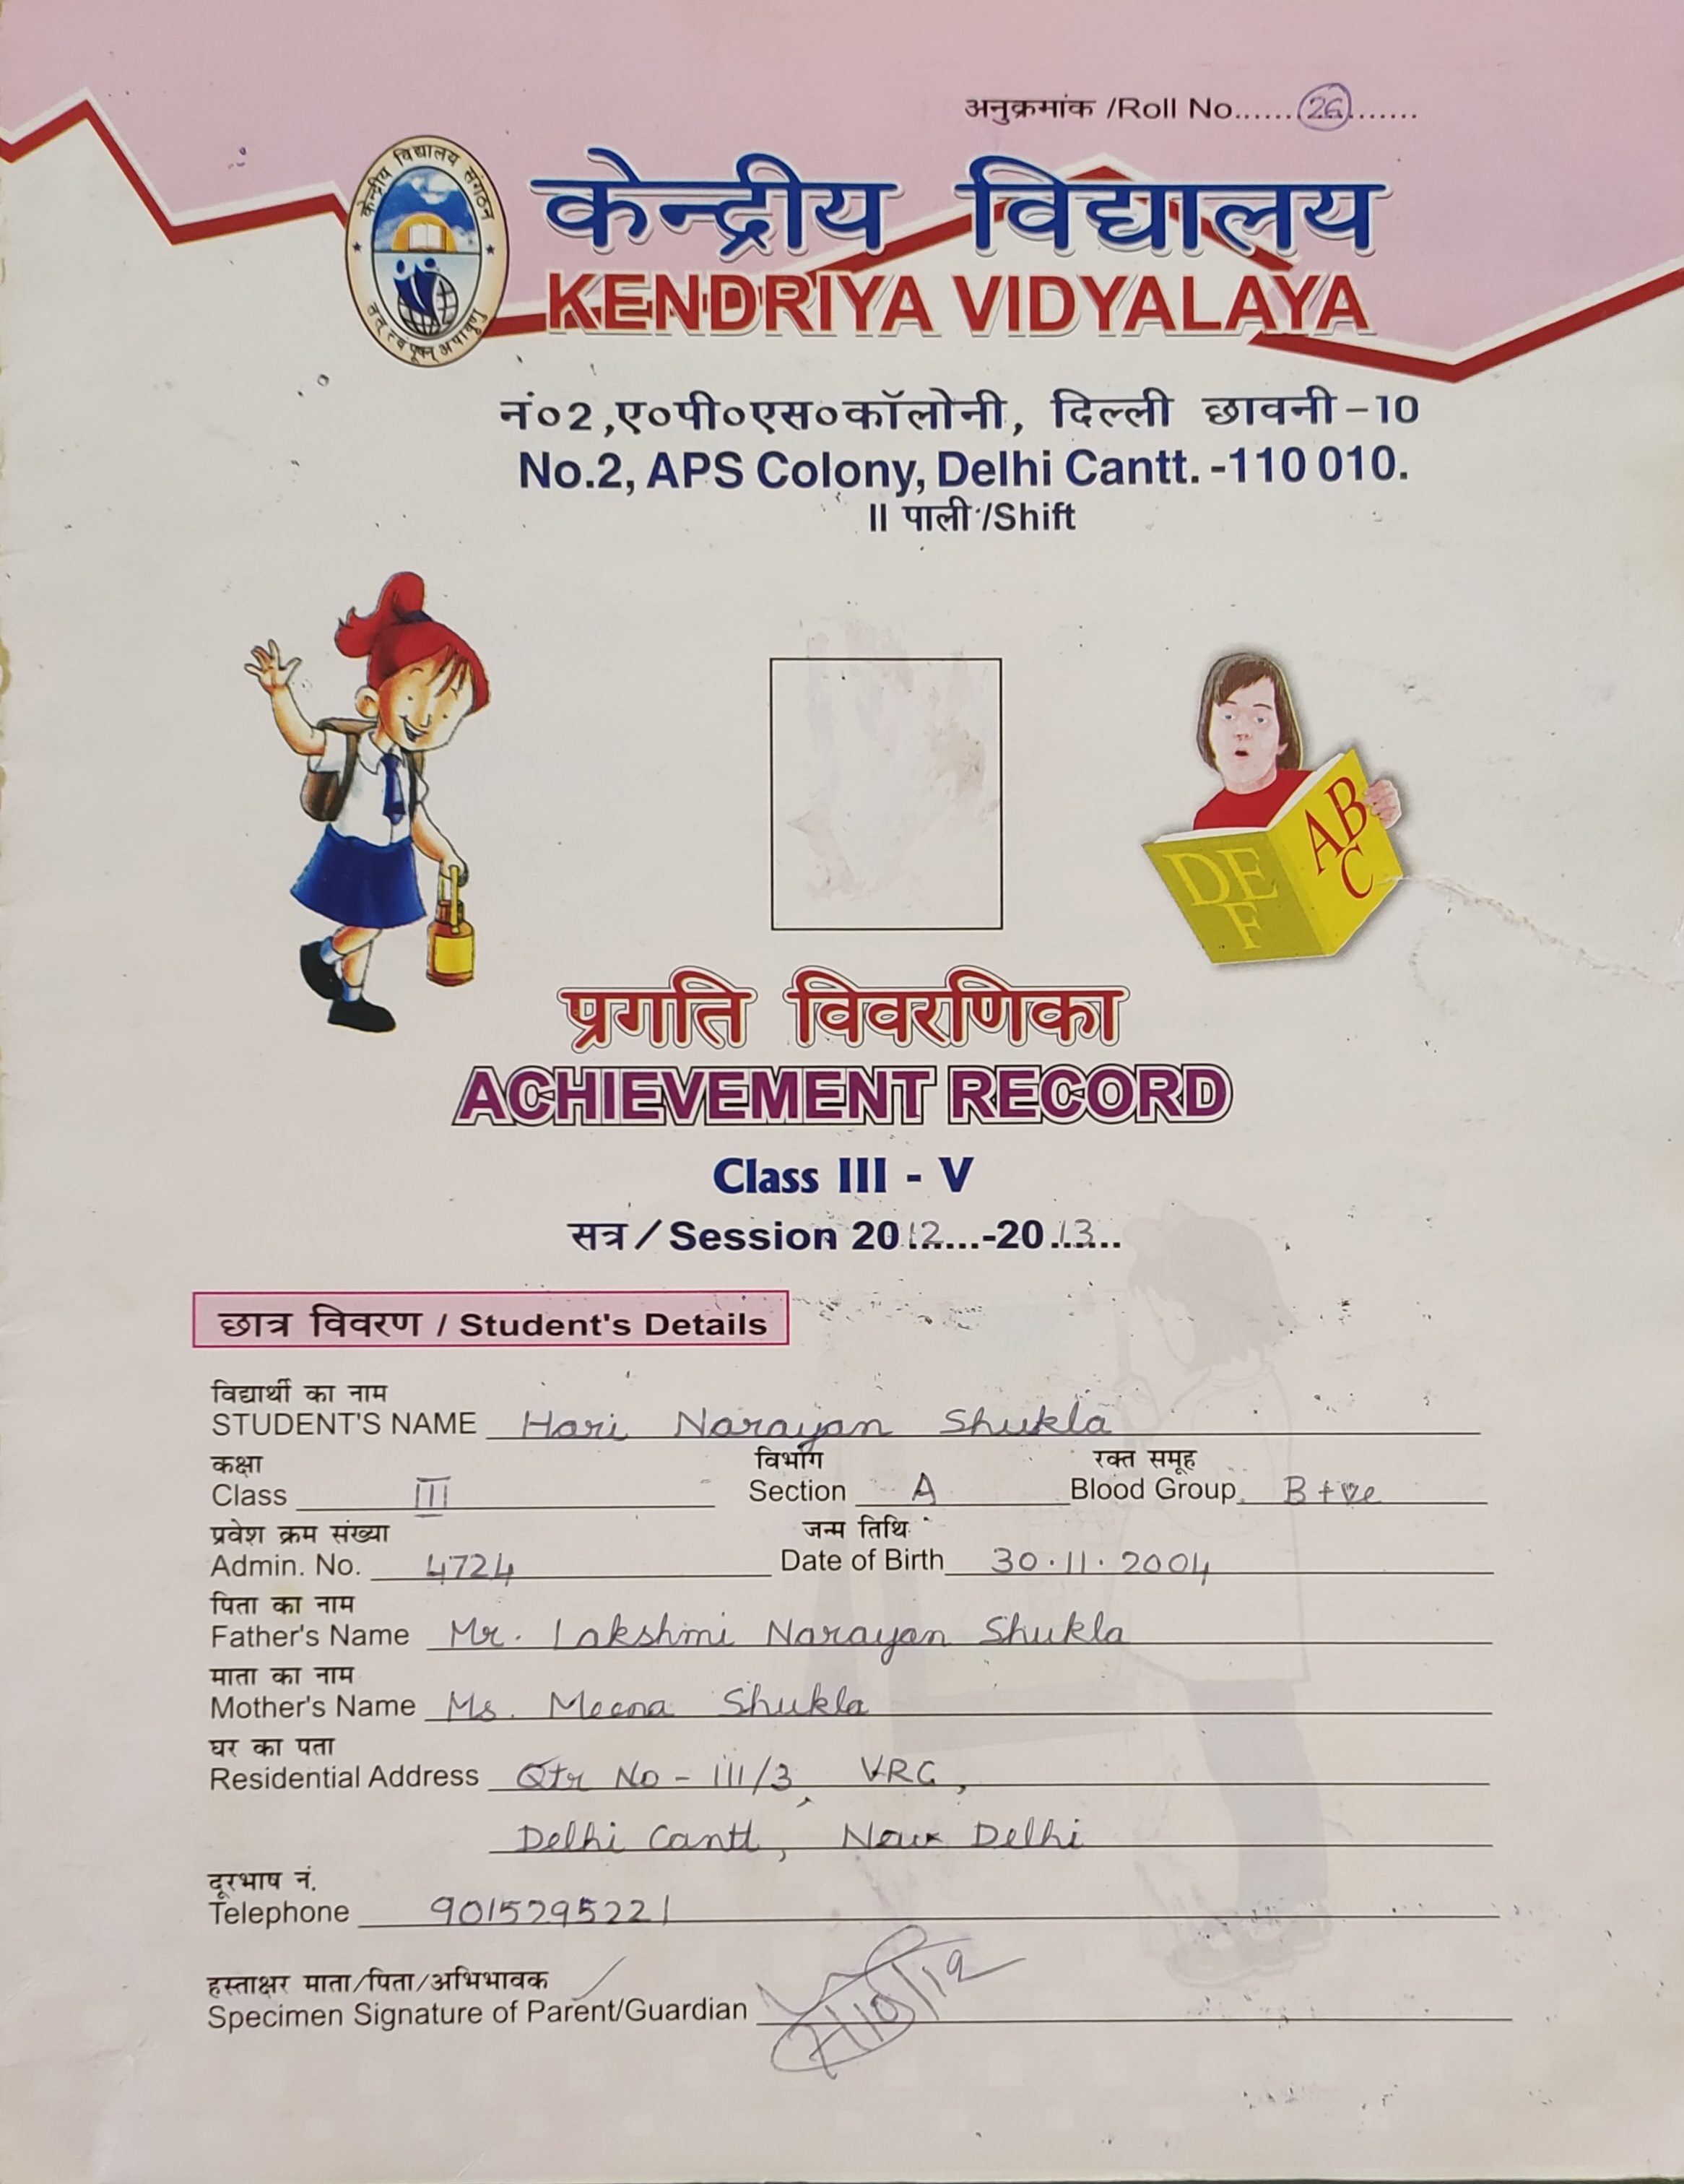 अनुक्रमांक /Roll No......26........
केन्द्रीय विद्यालय संगठन
तत् त्वं पूषन् अपावृणु
केन्द्रीय विद्यालय
KENDRIYA VIDYALAYA
नं०2,ए०पी०एस०कॉलोनी, दिल्ली छावनी-10
No.2, APS Colony, Delhi Cantt. -110 010.
II पाली /Shift
DE
F
AB
C
प्रगति विवरणिका
ACHIEVEMENT RECORD
Class III - V
सत्र / Session 2012.....-2013.....
छात्र विवरण / Student's Details
विद्यार्थी का नाम
STUDENT'S NAME Hari Narayan Shukla
कक्षा विभाग रक्त समूह
Class III Section A Blood Group B+ve
प्रवेश क्रम संख्या जन्म तिथि
Admin. No. 4724 Date of Birth 30.11.2004
पिता का नाम
Father's Name Mr. Lakshmi Narayan Shukla
माता का नाम
Mother's Name Ms. Meena Shukla
घर का पता
Residential Address Qtr No - III/3, VRC,
Delhi Cantt, New Delhi
दूरभाष नं.
Telephone 9015295221
हस्ताक्षर माता/पिता/अभिभावक
Specimen Signature of Parent/Guardian